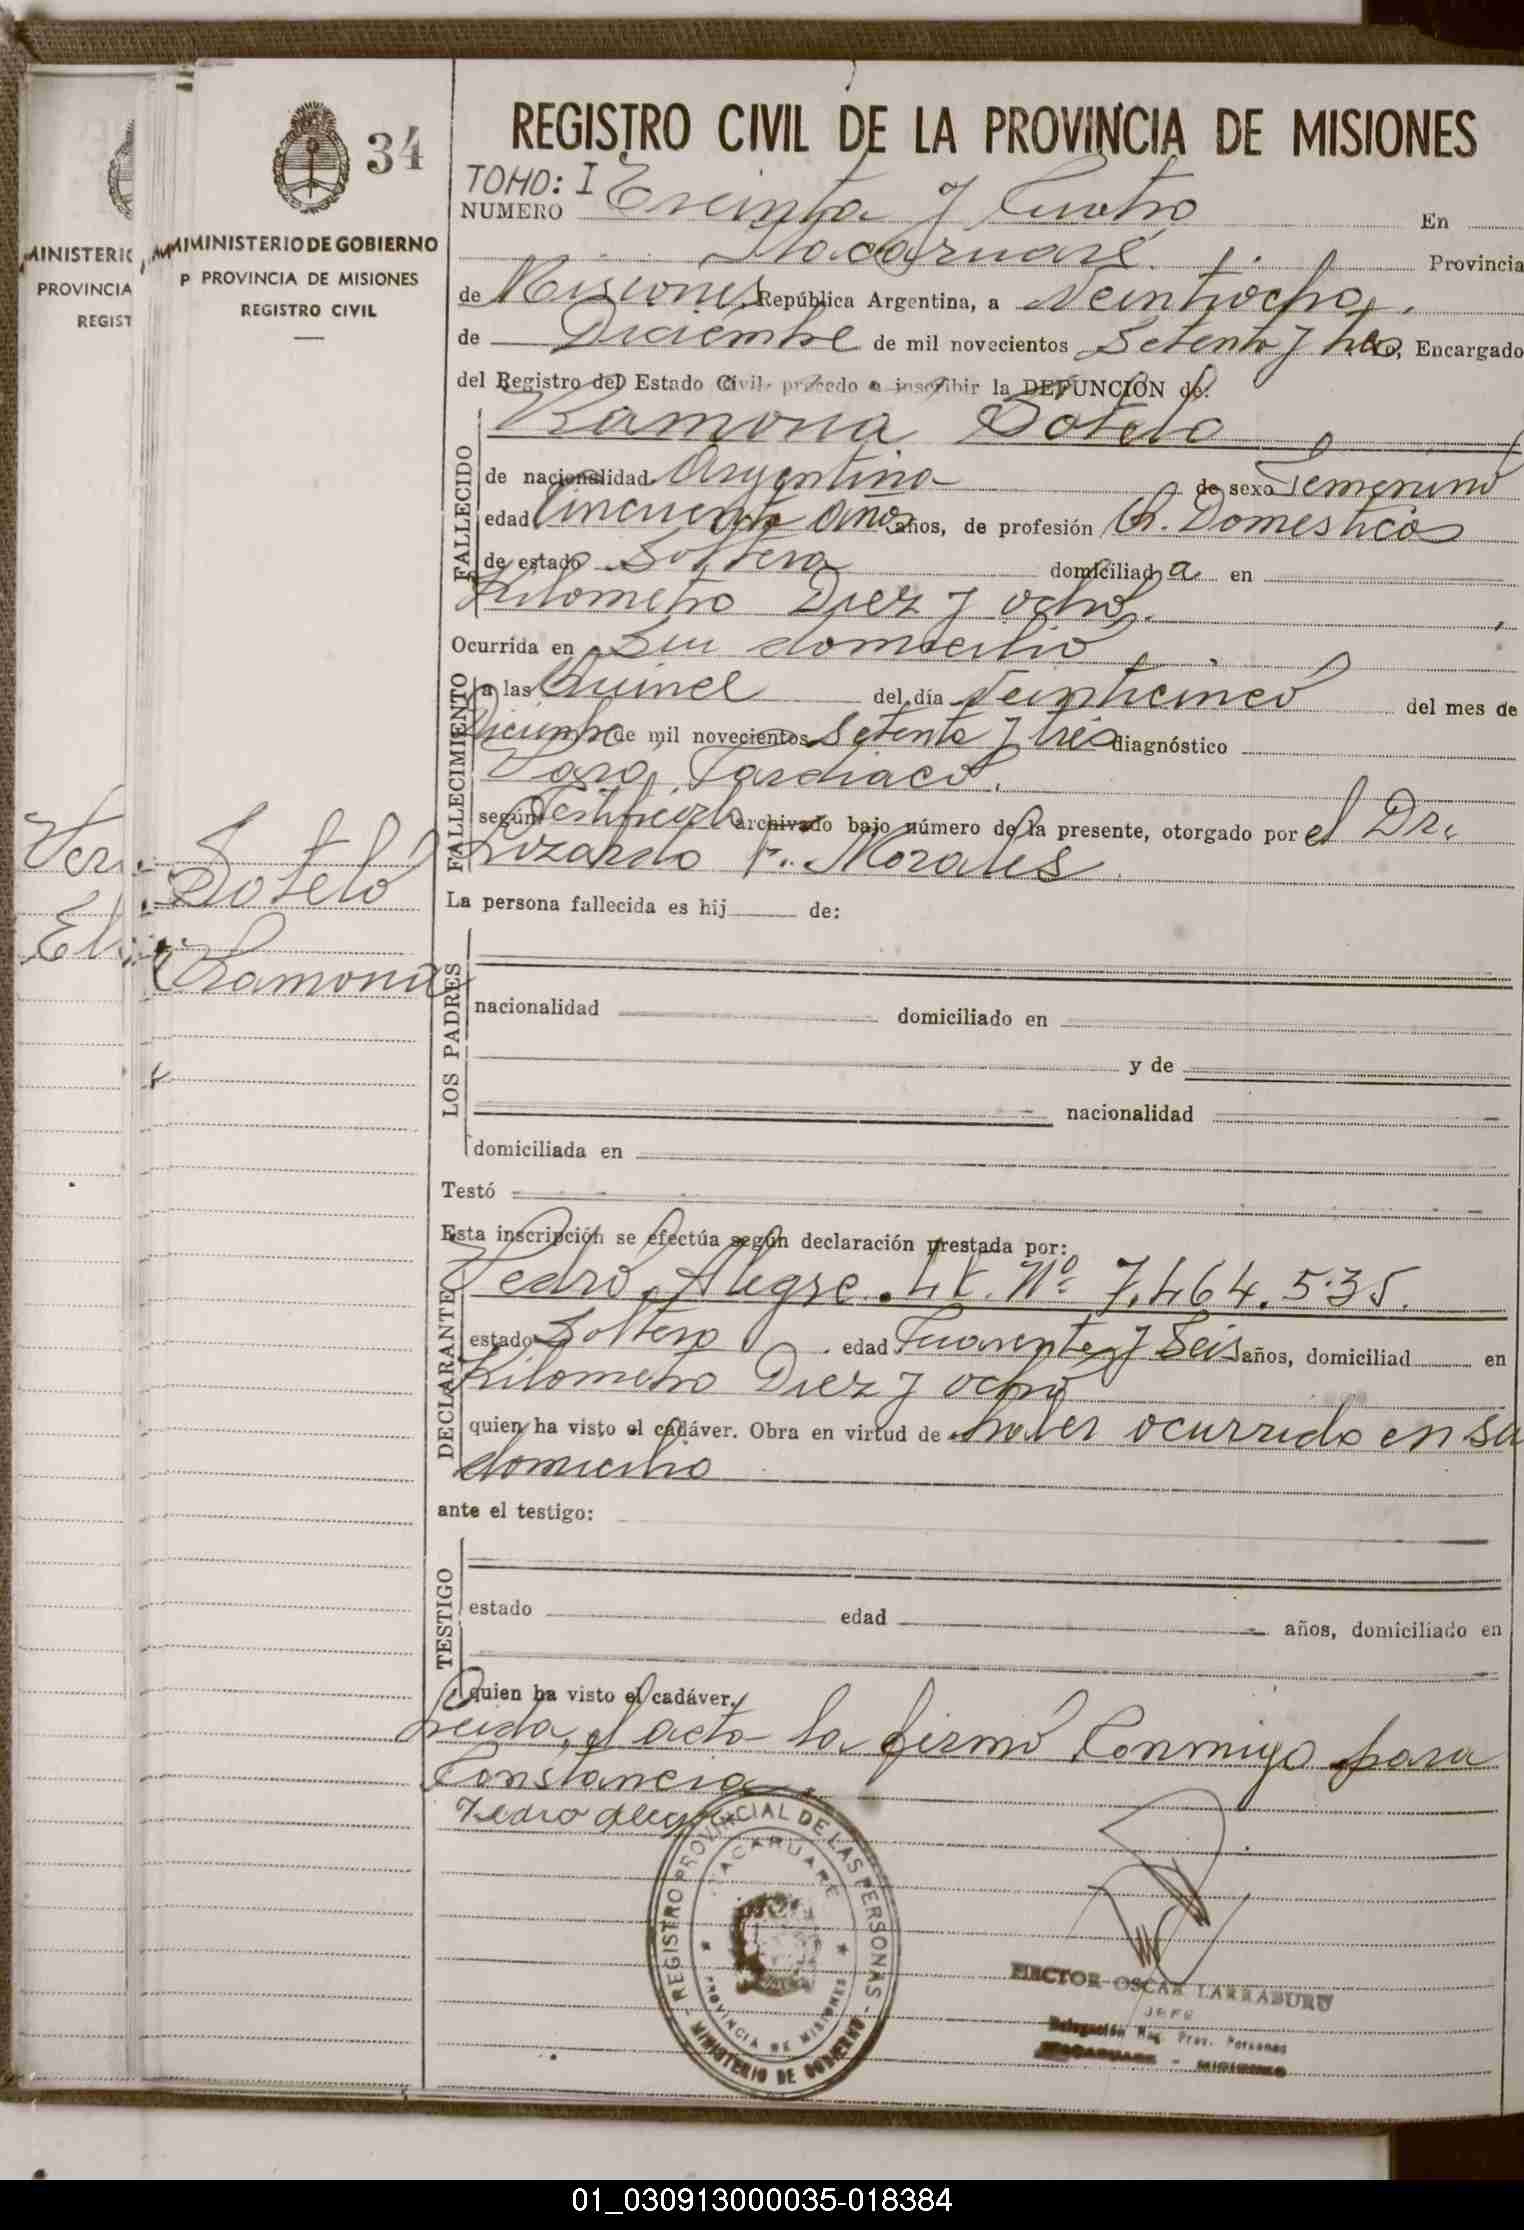 REGISTRO CIVIL DE LA PROVINCIA DE MISIONES
34
TOMO: I
NUMERO Treinta y Cuatro En
Itacaruaré. Provincia
de Misiones República Argentina, a Veintiocho,
de Diciembre de mil novecientos Setenta y tres, Encargado
del Registro del Estado Civil procedo a inscribir la DEFUNCION de:
FALLECIDO
Ramona Sotelo
de nacionalidad Argentina de sexo Femenino
edad Cincuenta años años, de profesión Q. Domesticos
de estado Soltera domiciliada en
Kilometro Diez y ocho.
Ocurrida en Su domicilio
FALLECIMIENTO
a las Quince del día Veinticinco del mes de
Diciembre de mil novecientos Setenta y tres diagnóstico
Paro Cardiaco.
según Certificado archivado bajo número de la presente, otorgado por el Dr.
Lizardo F. Morales
La persona fallecida es hij de:
LOS PADRES
nacionalidad domiciliado en
y de
nacionalidad
domiciliada en
Testó
Esta inscripción se efectúa según declaración prestada por:
DECLARANTE
Pedro Alegre. Nº 7.464.535.
estado Soltero edad Cuarenta y Seis años, domiciliad en
Kilometro Diez y ocho
quien ha visto el cadáver. Obra en virtud de haber ocurrido en su
domicilio
ante el testigo:
TESTIGO
estado edad años, domiciliado en
quien ha visto el cadáver.
Leida, el acta la firmó Conmigo para
Constancia.
Pedro Aleg
REGISTRO PROVINCIAL DE LAS PERSONAS - MINISTERIO DE GOBIERNO
ITACARUARÉ
PROVINCIA DE MISIONES
HECTOR OSCAR LARRABURU
JEFE
Delegación Reg. Prov. Personas
ITACARUARE - MISIONES
MINISTERIO DE GOBIERNO
PROVINCIA DE MISIONES
REGISTRO CIVIL
Sotelo
Ramona
MINISTERIO
PROVINCIA
REGIST
01_030913000035-018384